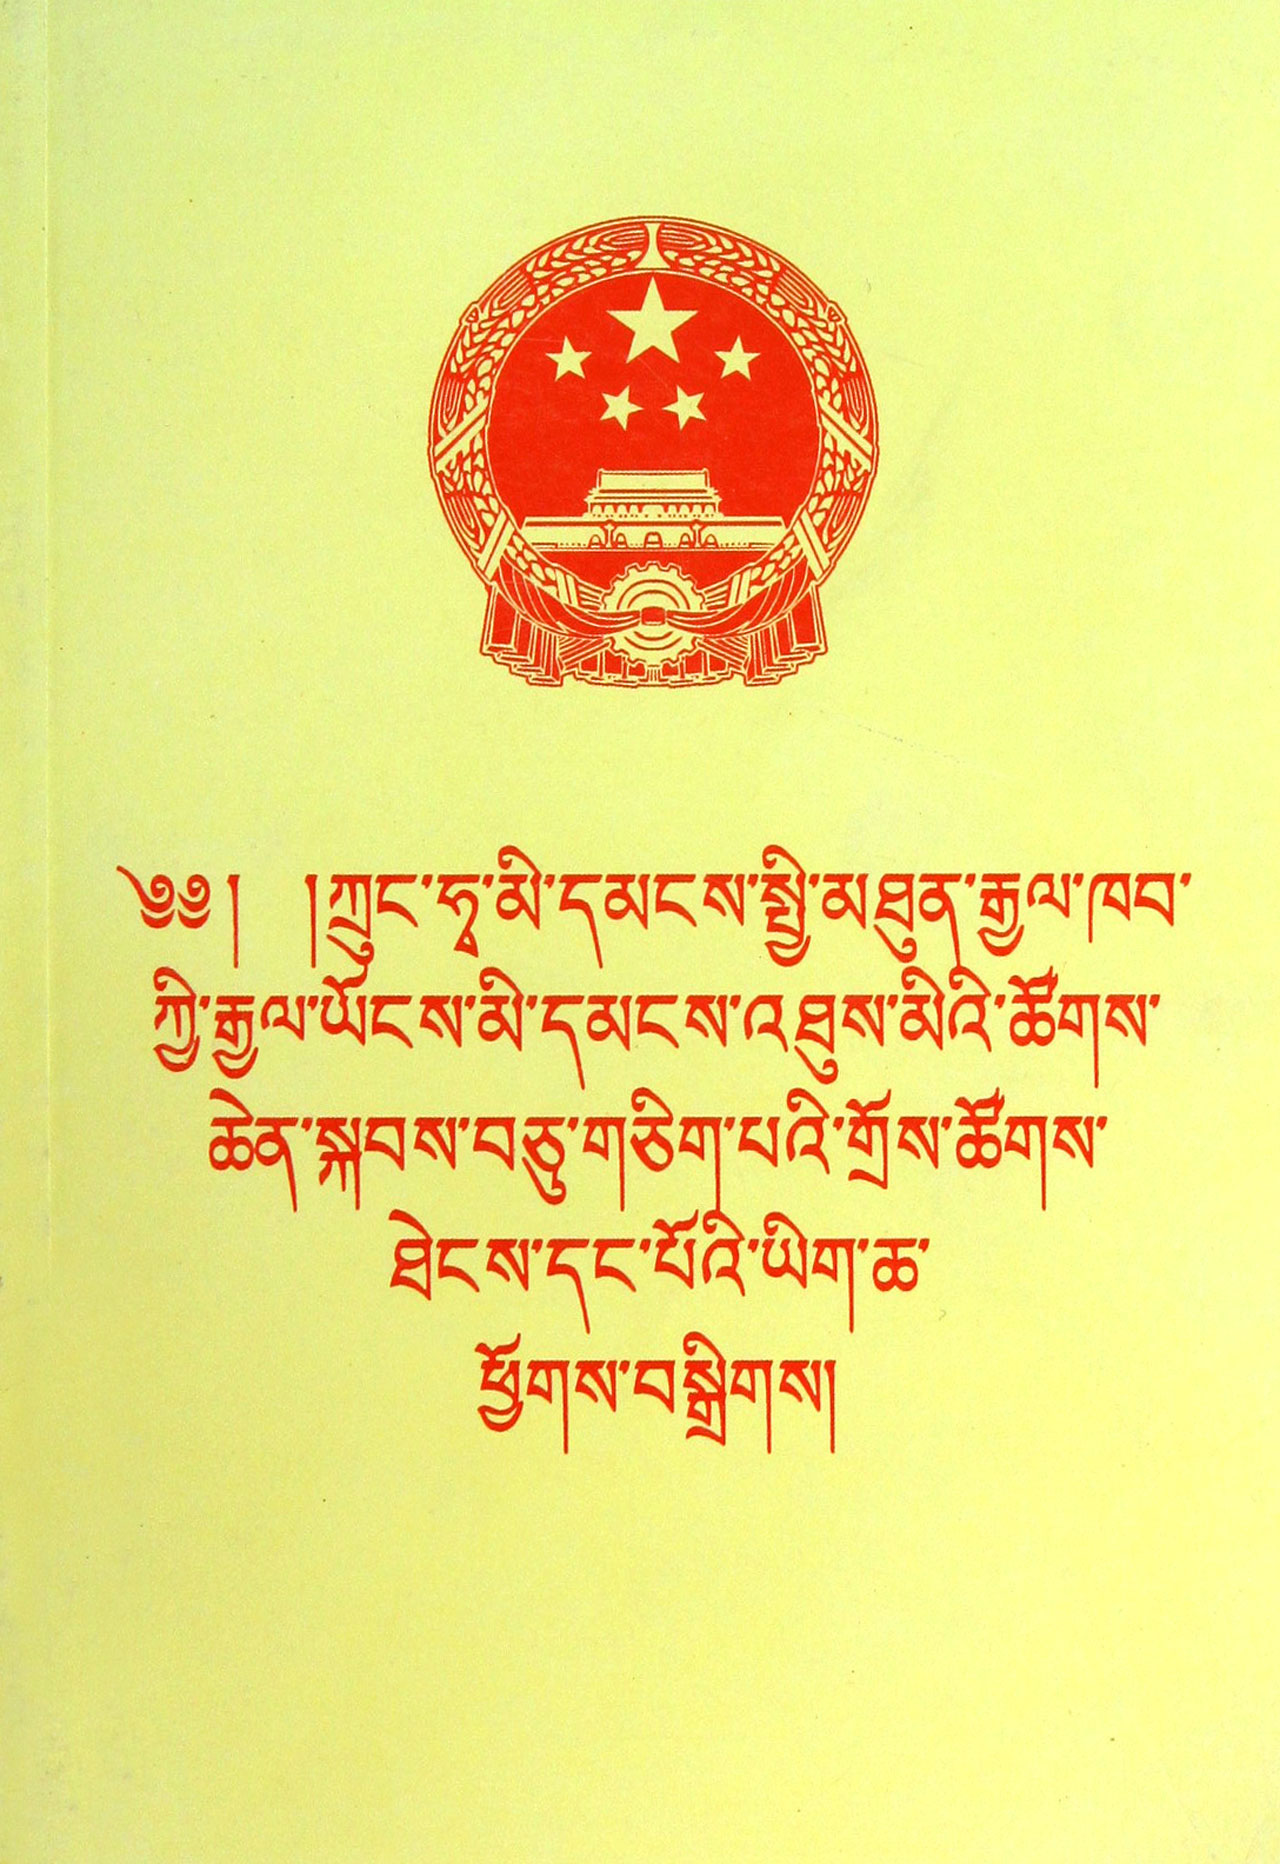 ༄༅། །ཀྲུང་ཧྭ་མི་དམངས་སྤྱི་མཐུན་རྒྱལ་ཁབ་
ཀྱི་རྒྱལ་ཡོངས་མི་དམངས་འཐུས་མིའི་ཚོགས་
ཆེན་སྐབས་བཅུ་གཅིག་པའི་གྲོས་ཚོགས་
ཐེངས་དང་པོའི་ཡིག་ཆ་
ཕྱོགས་བསྒྲིགས།